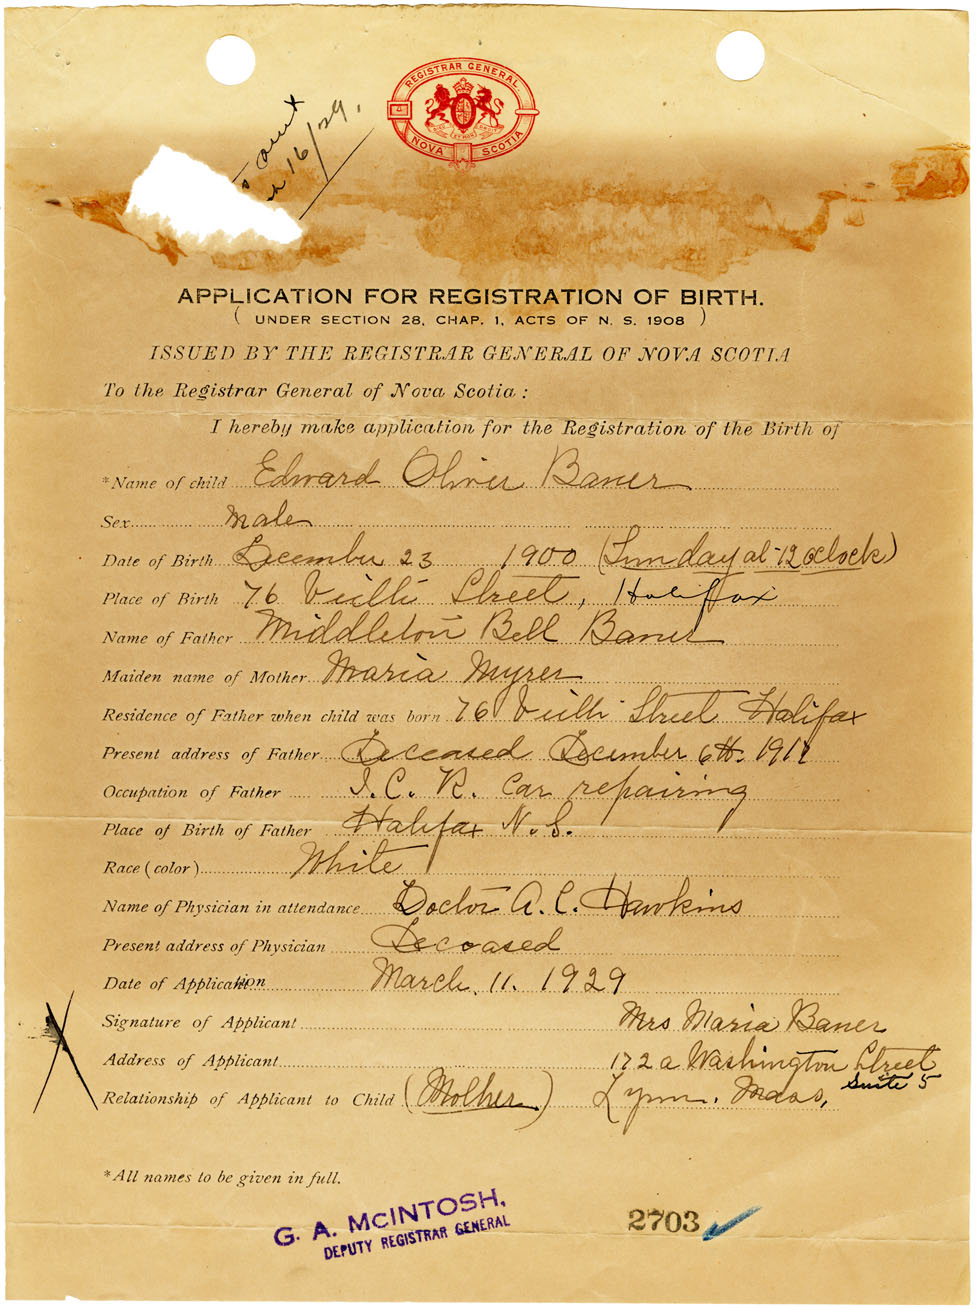 REGISTRAR GENERAL
NOVA SCOTIA
16/29.
APPLICATION FOR REGISTRATION OF BIRTH.
( UNDER SECTION 28, CHAP. 1, ACTS OF N. S. 1908 )
ISSUED BY THE REGISTRAR GENERAL OF NOVA SCOTIA
To the Registrar General of Nova Scotia :
I hereby make application for the Registration of the Birth of
*Name of child Edward Oliver Baner
Sex Male
Date of Birth December 23 1900 (Sunday at 12 oclock)
Place of Birth 76 Veith Street, Halifax
Name of Father Middleton Bell Baner
Maiden name of Mother Maria Myrer
Residence of Father when child was born 76 Veith Street Halifax
Present address of Father Deceased December 6th. 1917
Occupation of Father I. C. R. Car repairing
Place of Birth of Father Halifax N. S.
Race (color) White
Name of Physician in attendance Doctor A. C. Hawkins
Present address of Physician Deceased
Date of Application March. 11. 1929
Signature of Applicant Mrs Maria Baner
Address of Applicant 172a Washington Street
Suite 5
Relationship of Applicant to Child (Mother) Lynn. Mass,
*All names to be given in full.
G. A. McINTOSH,
DEPUTY REGISTRAR GENERAL
2703